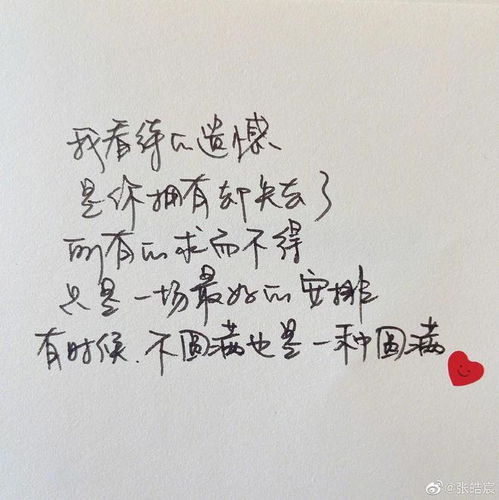 我看待的遗憾
是你拥有却失去了
所有的求而不得
只是一场最好的安排
有时候.不圆满也是一种圆满
@张皓宸